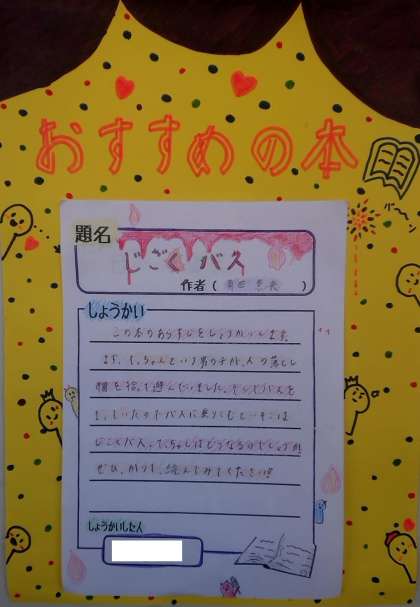 おすすめの本
バーン
題名
じごくバス
作者( )
しょうかい
この本のあらすじをしょうかいします。
まず、てっちゃんという男の子が、人の落とし
物を拾って遊んでいました。そしてバスを
まっていたのでバスに乗りこむと…そこは
じごくバス。てっちゃんはどうなるのでしょうか
ぜひ、かりて、読んでみてください!!
しょうかいした人